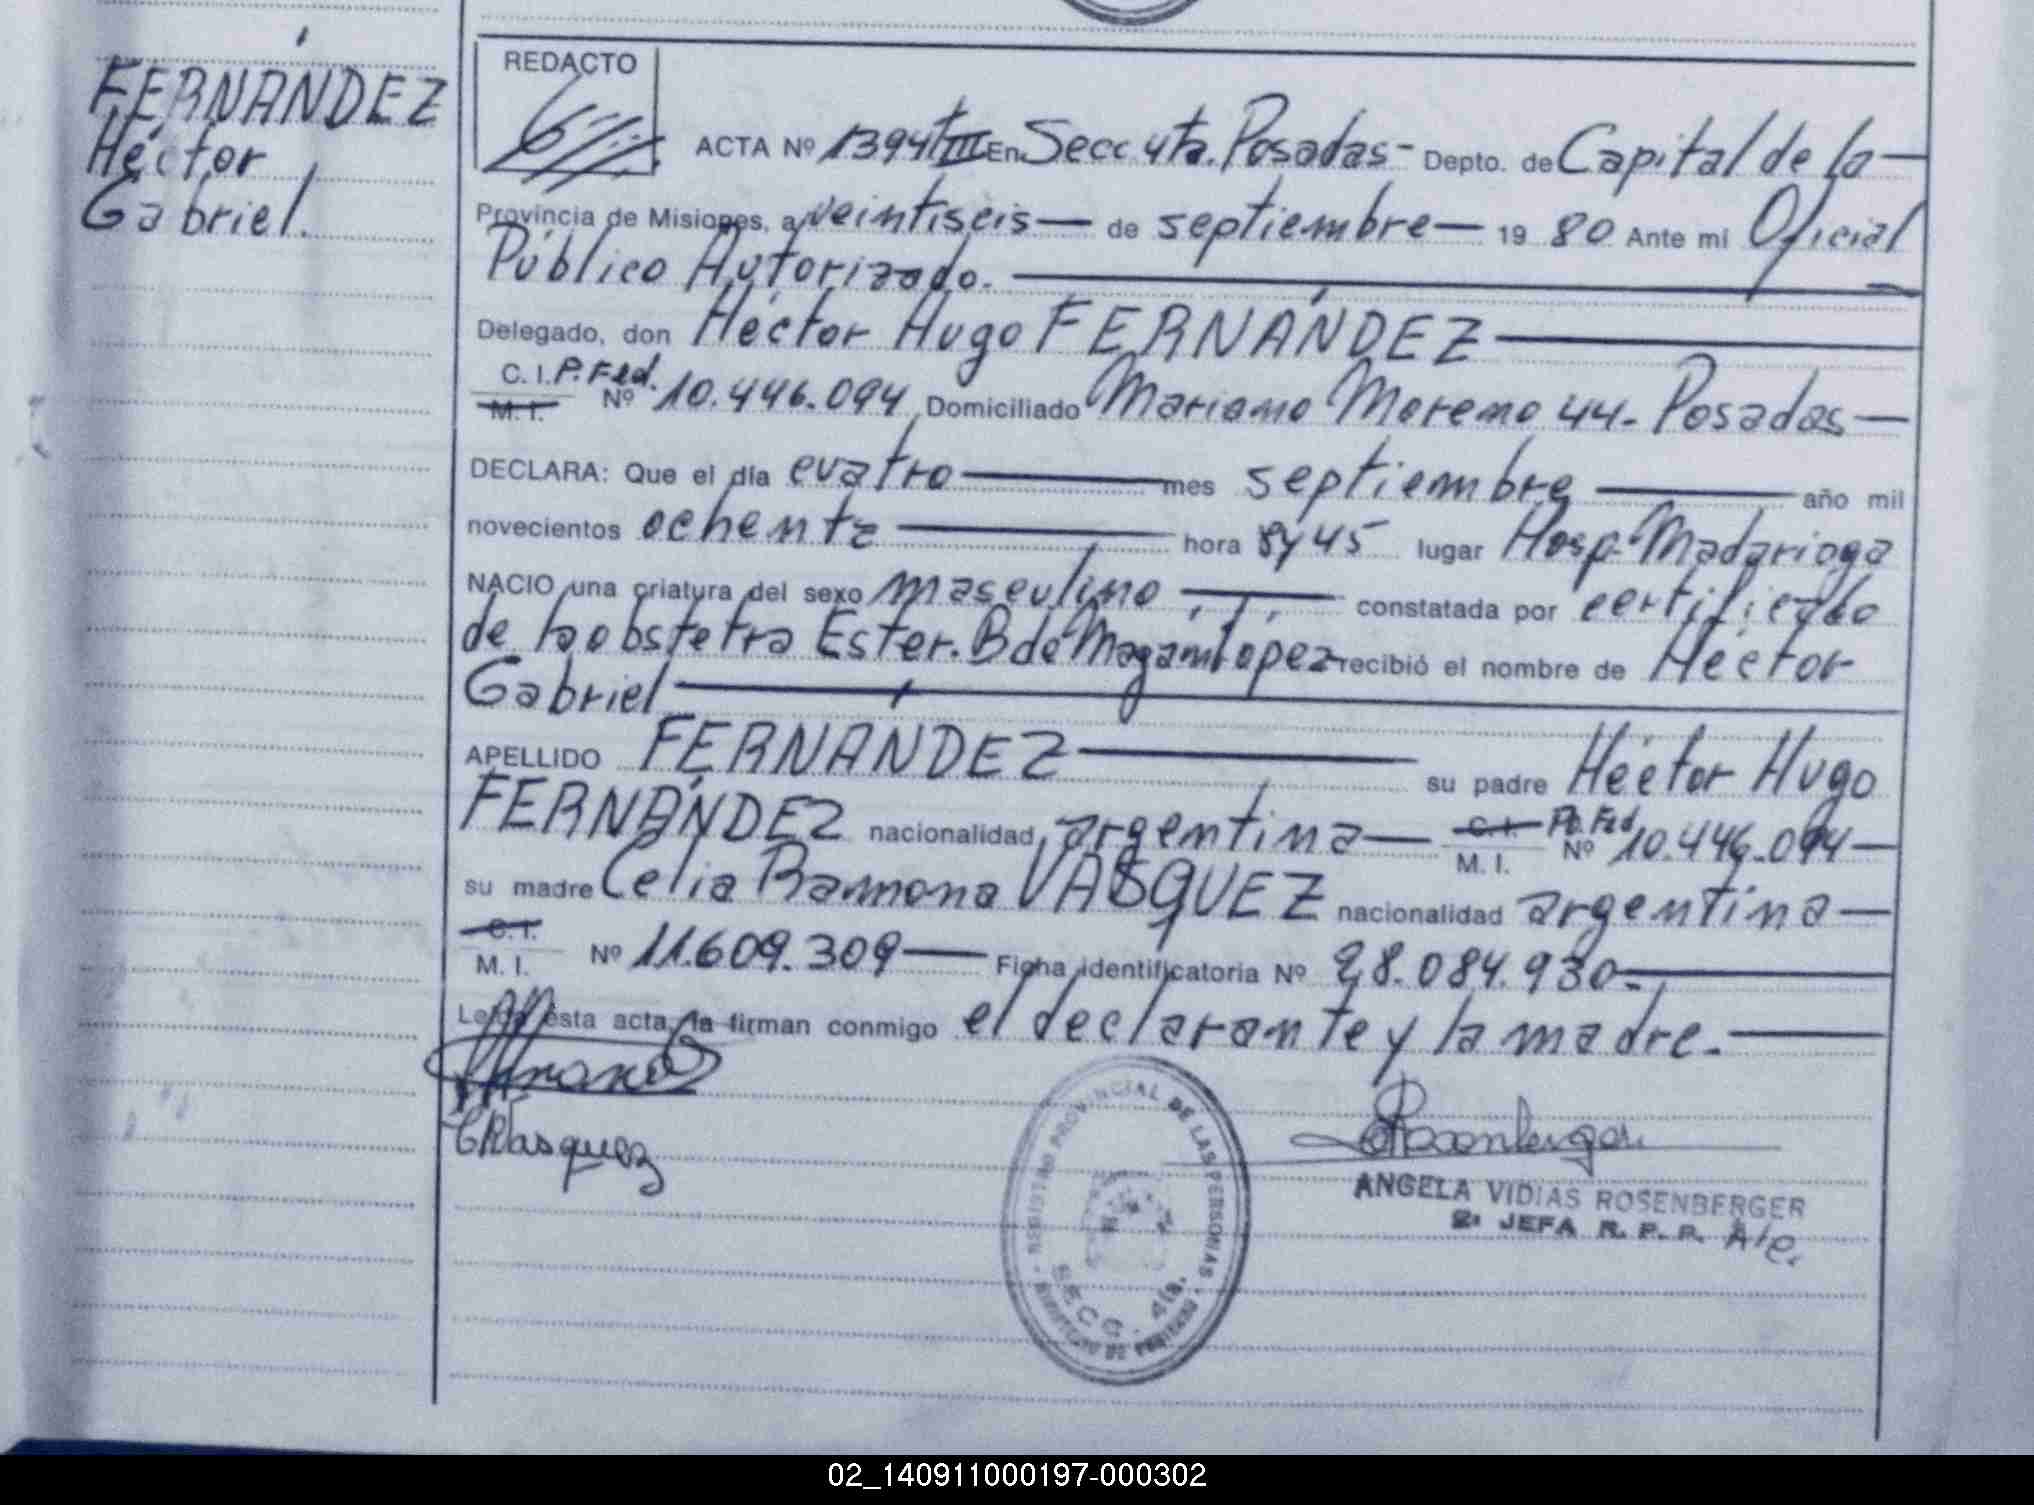 FERNÁNDEZ
Héctor
Gabriel.
REDACTO
ACTA Nº 1394 TIII En Secc. 4ta. Posadas- Depto. de Capital de la
Provincia de Misiones, a veintiseis de septiembre 19 80 Ante mi Oficial
Público Autorizado.
Delegado, don Héctor Hugo FERNÁNDEZ
C. I. P. Fed.
M. I. Nº 10.446.094 Domiciliado Mariano Moreno 44- Posadas
DECLARA: Que el día cuatro mes septiembre año mil
novecientos ochenta hora 8y45 lugar Hosp. Madariaga
NACIO una criatura del sexo masculino constatada por certificado
de la obstetra Ester. B de López recibió el nombre de Héctor
Gabriel
APELLIDO FERNÁNDEZ su padre Héctor Hugo
FERNÁNDEZ nacionalidad argentina C. I. M. I. Po. Fed Nº 10.446.094
su madre Celia Ramona VASQUEZ nacionalidad argentina
C. I.
M. I. Nº 11.609.309 Ficha identificatoria Nº 28.084.930.
Leída ésta acta, la firman conmigo el declarante y la madre.
CRVasquez
REGISTRO PROVINCIAL DE LAS PERSONAS
SECC. 4ta.
ANGELA VIDIAS ROSENBERGER
2: JEFA R. P. P.
02_140911000197-000302